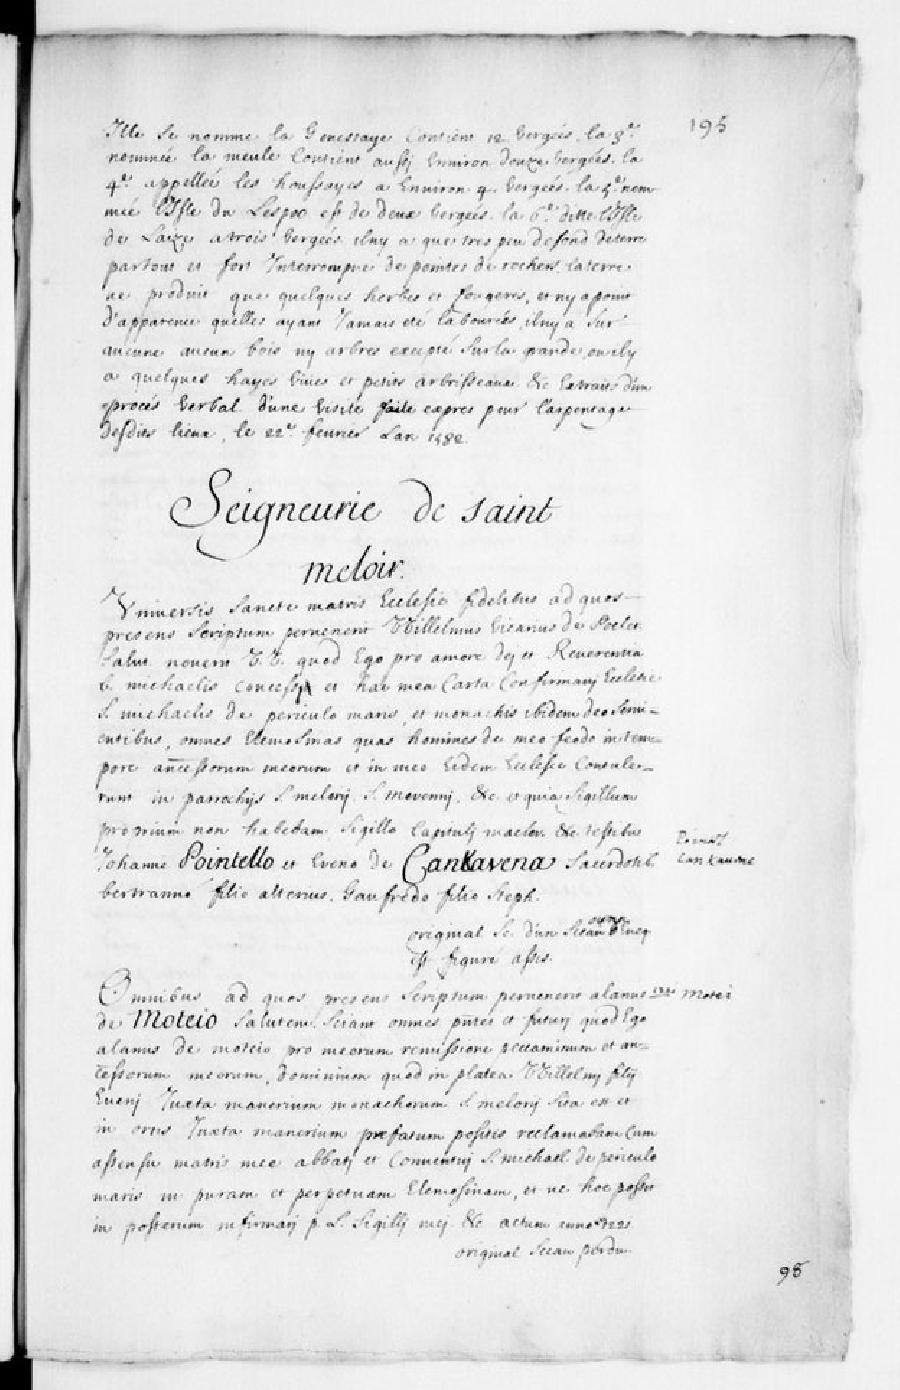 195
Isle se nomme la Genestaye Contient 12 Vergées. la 3e.
nommée la meule Contient aussj Environ douze Vergées. la
4e. appellée les houssayes a Environ 4. Vergées. la 5e. nom-
mée l'Isle du Lespoo est de deux Vergées. la 6e. ditte l'Isle
de Laize a trois Vergées. ilny a que tres peu de fond de terre
partout et fort Interrompue de pointes de rochers. la terre
ne produit que quelques herbes et fougeres, et ny a point
d'apparence quelles ayant Jamais eté labourées, ilny a Sur
aucune aucun bois ny arbres excepté Surla grande, ou ily
a quelques hayes Vives et petits arbrisseaux. &c Extrait d'un
procés Verbal d'une Visite faite expres pour l'arpentage
desdits lieux, le 22e. feurier Lan 1582.
Seigneurie de saint
meloir.
Vniuersis Sancte matris Ecclesie fidelibus ad quos
presens Scriptum peruenerit Willelmus Vicarius de Poelet
Salut. nouerit V. V. quod Ego pro amore dej et Reuerentia
b. michaelis Concessi et hac mea Carta Confirmauj Ecclesie
S. michaelis de periculo maris, et monachis ibidem deo Serui=
entibus, omnes Elemosinas quas homines de meo feodo in tem=
pore ancessorum meorum et in meo Eidem Ecclesie Contule-
runt in parrochijs S. melorij S. Mevennj, &c. et quia Sigillum
proprium non habebam Sigillo Capitulj maclov. &c testibus
Johanne Pointello et Eveno de Cankavena Sacerdotib.
Cankauene
bertranno filio alterius. Gaufredo filio Steph.
original Sc. d'un Sceau
est figuré assis.
Omnibus ad quos presens Scriptum peruenerit alanus
Motei
de Moteio Salutem. Sciant omnes pntes et futurj quod Ego
alanus de moteio pro meorum remissione peccaminum et an=
tessorum meorum, dominium quod in platea Willelmj filij
Euenj Juxta manerium monachorum S. melorij Sita est et
in ortis Juxta manerium prefatum positis reclamabam Cum
assensu matris mee abbatj et Conuentuj S. michael. de periculo
maris in puram et perpetuam Elemosinam, et ne hoc posset
in posterum infirmarj p. S. Sigillj mej. &c actum anno 1221.
original Sceau perdu.
98